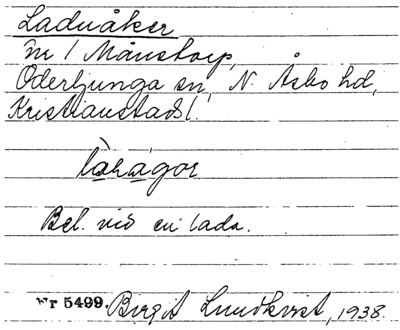 Laduåker
nr 1 Månstorp,
Oderljunga sn, N. Åsbo hd,
Kristianstads l.
Bel. vid en lada.
Nr 5499. Birgit Lundkvist, 1938.